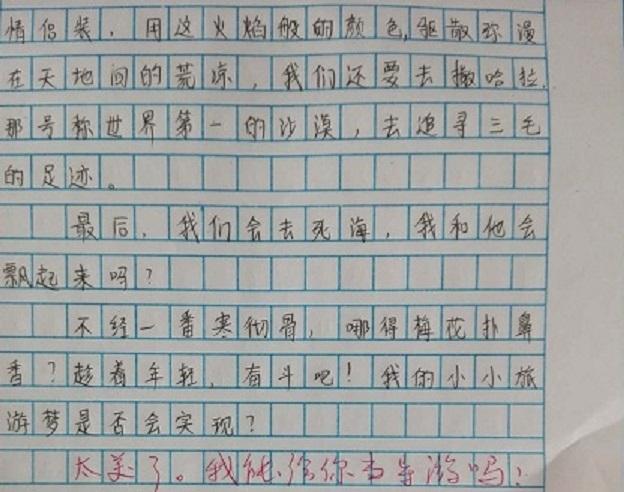 情侣装，用这火焰般的颜色，驱散弥漫
在天地间的荒凉，我们还要去撒哈拉，
那号称世界第一的沙漠，去追寻三毛
的足迹。
最后，我们会去死海，我和他会
飘起来吗？
不经一番寒彻骨，哪得梅花扑鼻
香？趁着年轻，奋斗吧！我的小小旅
游梦是否会实现？
太美了。我能给你当导游吗！